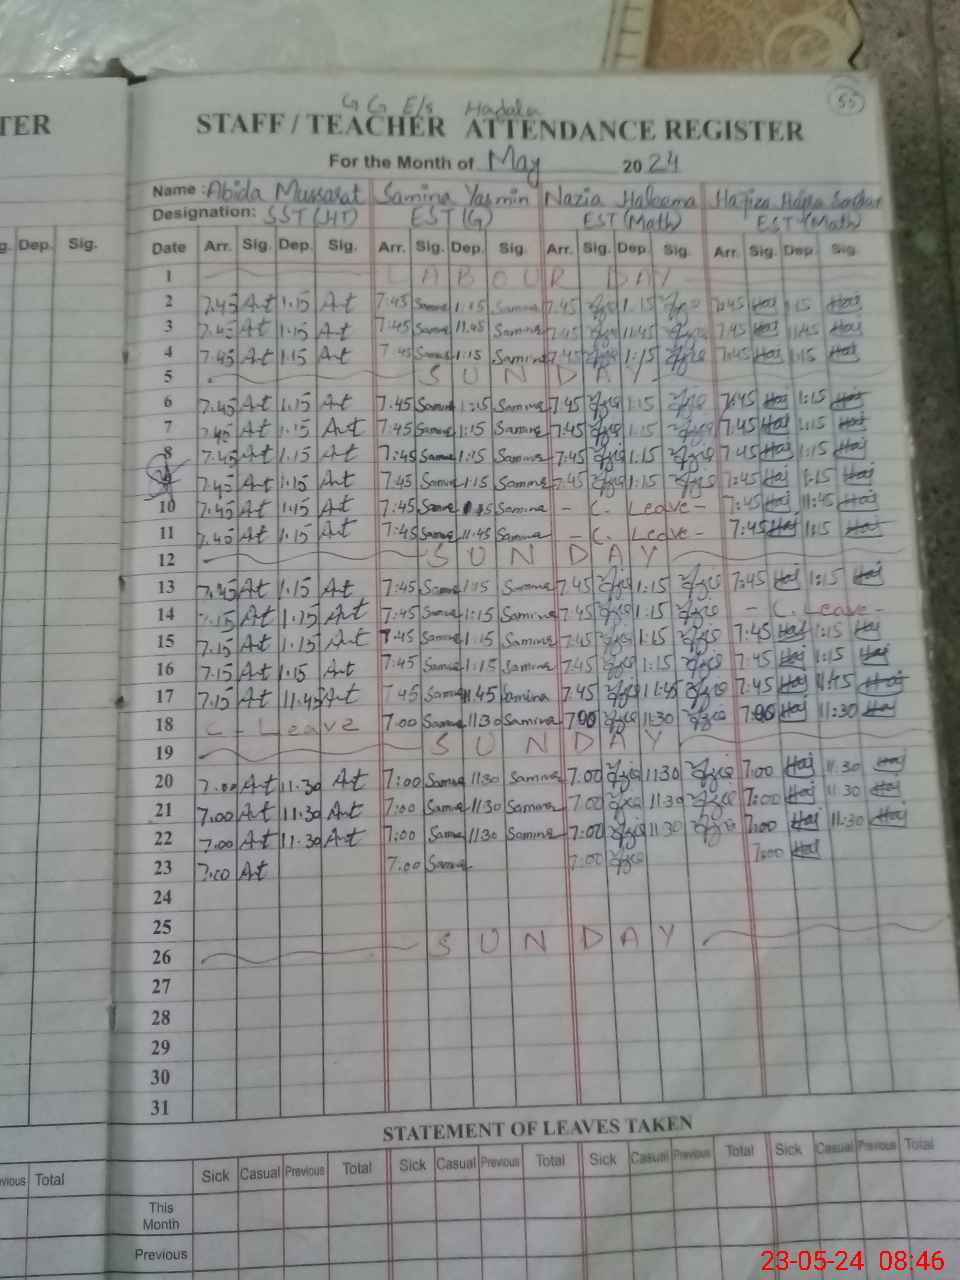 G G E/s Hadala
55
TER
STAFF / TEACHER ATTENDANCE REGISTER
For the Month of May 2024
Name : Abida Mussarat Samina Yasmin Nazia Haleema Hafiza
Designation: SST (HT) EST (G) EST (Math) EST (Math)
g. Dep. Sig. Date Arr. Sig. Dep. Sig. Arr. Sig. Dep. Sig. Arr. Sig. Dep. Sig. Arr. Sig. Dep. Sig.
1 LABOUR DAY
2 7.45 At 1.15 At 7:45 Samina 1:15 Samina 7.45 1.15 7:45 Haj 1:15 Haj
3 7.45 At 1.15 At 7:45 Samina 11.45 Samina 7.45 11.45 7:45 Haj 11:45 Haj
4 7.45 At 1.15 At 7:45 Samina 1:15 Samina 7.45 1:15 7:45 Haj 1:15 Haj
5 SUNDAY
6 7.45 At 1.15 At 7.45 Samina 1:15 Samina 7.45 1:15 7:45 Haj 1:15 Haj
7 7.45 At 1.15 At 7:45 Samina 1:15 Samina 7.45 1:15 7:45 Haj 1:15 Haj
8 7.45 At 1.15 At 7:45 Samina 1:15 Samina 7.45 1:15 7:45 Haj 1:15 Haj
7.45 At 1.15 At 7:45 Samina 1:15 Samina 7.45 1:15 7:45 Haj 1:15 Haj
10 7.45 At 1.15 At 7:45 Samina Samina - C. Leave - 7:45 Haj 11:45 Haj
11 7.45 At 1.15 At 7:45 Samina 11.45 Samina - C. Leave - 7:45 Haj 1:15 Haj
12 SUNDAY
13 7.45 At 1.15 At 7:45 Samina 1:15 Samina 7.45 1:15 7:45 Haj 1:15 Haj
14 7.15 At 1.15 At 7:45 Samina 1:15 Samina 7.45 1:15 - C. Leave -
15 7.15 At 1.15 At 7.45 Samina 1:15 Samina 7.45 1:15 7:45 Haj 1:15 Haj
16 7.15 At 1.15 At 7:45 Samina 1:15 Samina 7.45 1:15 7:45 Haj 1:15 Haj
17 7.15 At 11.45 At 7.45 Samina 11.45 Samina 7.45 11:45 7:45 Haj 11:45 Haj
18 C. Leave 7.00 Samina 11.30 Samina 7.00 11:30 7:00 Haj 11:30 Haj
19 SUNDAY
20 7.00 At 11.30 At 7:00 Samina 11.30 Samina 7.00 11:30 7:00 Haj 11.30 Haj
21 7.00 At 11.30 At 7:00 Samina 11.30 Samina 7.00 11:30 7:00 Haj 11:30 Haj
22 7.00 At 11.30 At 7:00 Samina 11.30 Samina 7:00 11:30 7:00 Haj 11:30 Haj
23 7.00 At 7.00 Samina 7:00 7:00 Haj
24
25
26 SUNDAY
27
28
29
30
31
STATEMENT OF LEAVES TAKEN
vious Total Sick Casual Previous Total Sick Casual Previous Total Sick Casual Previous Total Sick Casual Previous Total
This
Month
Previous
23-05-24 08:46